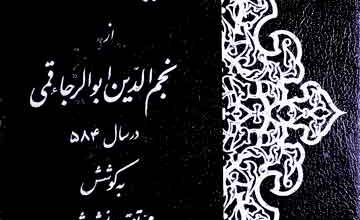 از
نجم الدین ابوالرجاء قمی
در سال ۵۸۴
به کوشش